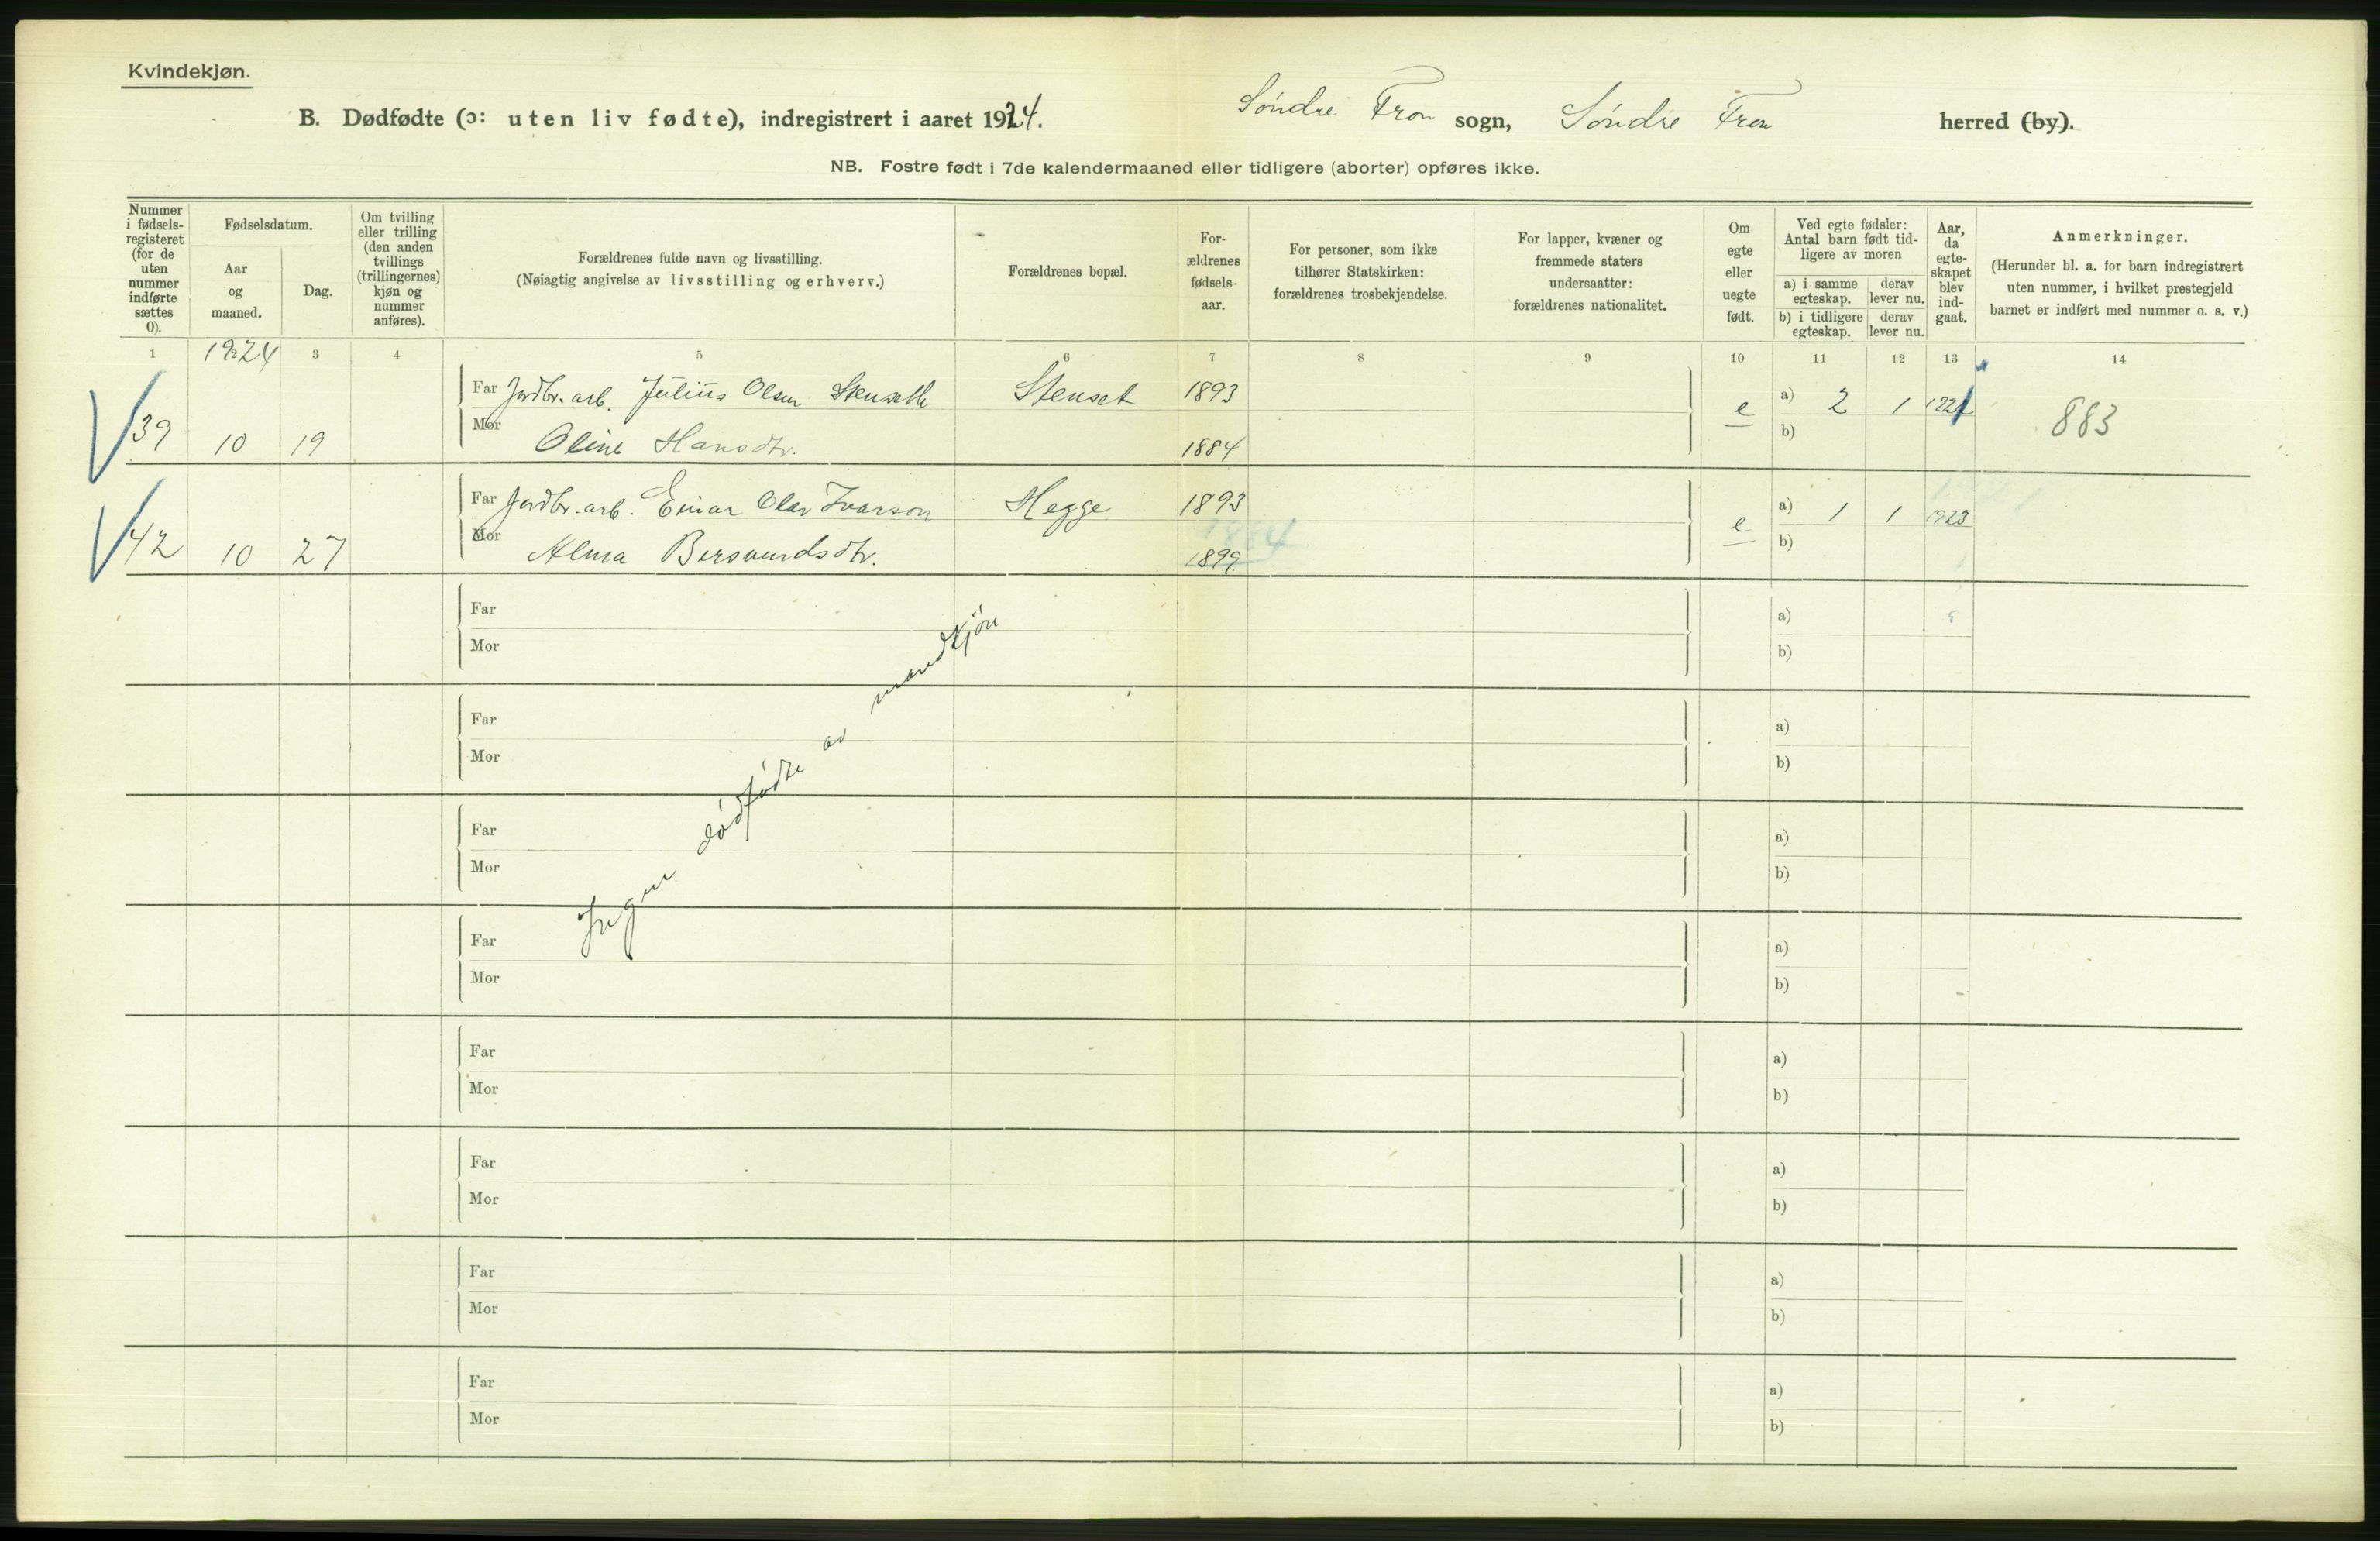 Kvindekjøn.
B. Dødfødte (ɔ: uten liv fødte), indregistrert i aaret 1924. Søndre Fron sogn, Søndre Fron herred (by).
NB. Fostre født i 7de kalendermaaned eller tidligere (aborter) opføres ikke.
Nummer i fødsels-registeret (for de uten nummer indførte sættes 0).
Fødselsdatum.
Aar og maaned.
Dag.
Om tvilling eller trilling (den anden tvillings (trillingernes) kjøn og nummer anføres).
Forældrenes fulde navn og livsstilling.
(Nøiagtig angivelse av livsstilling og erhverv.)
Forældrenes bopæl.
For-ældrenes fødsels-aar.
For personer, som ikke tilhører Statskirken: forældrenes trosbekjendelse.
For lapper, kvæner og fremmede staters undersaatter: forældrenes nationalitet.
Om egte eller uegte født.
Ved egte fødsler: Antal barn født tid-ligere av moren
a) i samme egteskap.
derav lever nu.
b) i tidligere egteskap.
derav lever nu.
Aar, da egte-skapet blev ind-gaat.
Anmerkninger.
(Herunder bl. a. for barn indregistrert uten nummer, i hvilket prestegjeld barnet er indført med nummer o. s. v.)
1 1924 3 4 5 6 7 8 9 10 11 12 13 14
Far Jordbr. arb. Julius Olsen Stenseth Stenset 1893
39 10 19 e a) 2 1 883
Mor Oline Hansdtr. 1884 b)
Far Jordbr. arb. Einar Olav Ivarson Hegge 1893
42 10 27 e a) 1 1 1923
Mor Alma Bersvendsdtr. 1899 b)
1884
Far a)
Mor b)
Far a)
Mor b)
Far a)
Mor b)
Far a)
Mor b)
Far a)
Mor b)
Far a)
Mor b)
Far a)
Mor b)
Far a)
Mor b)
Ingen dødfødte av mandkjøn